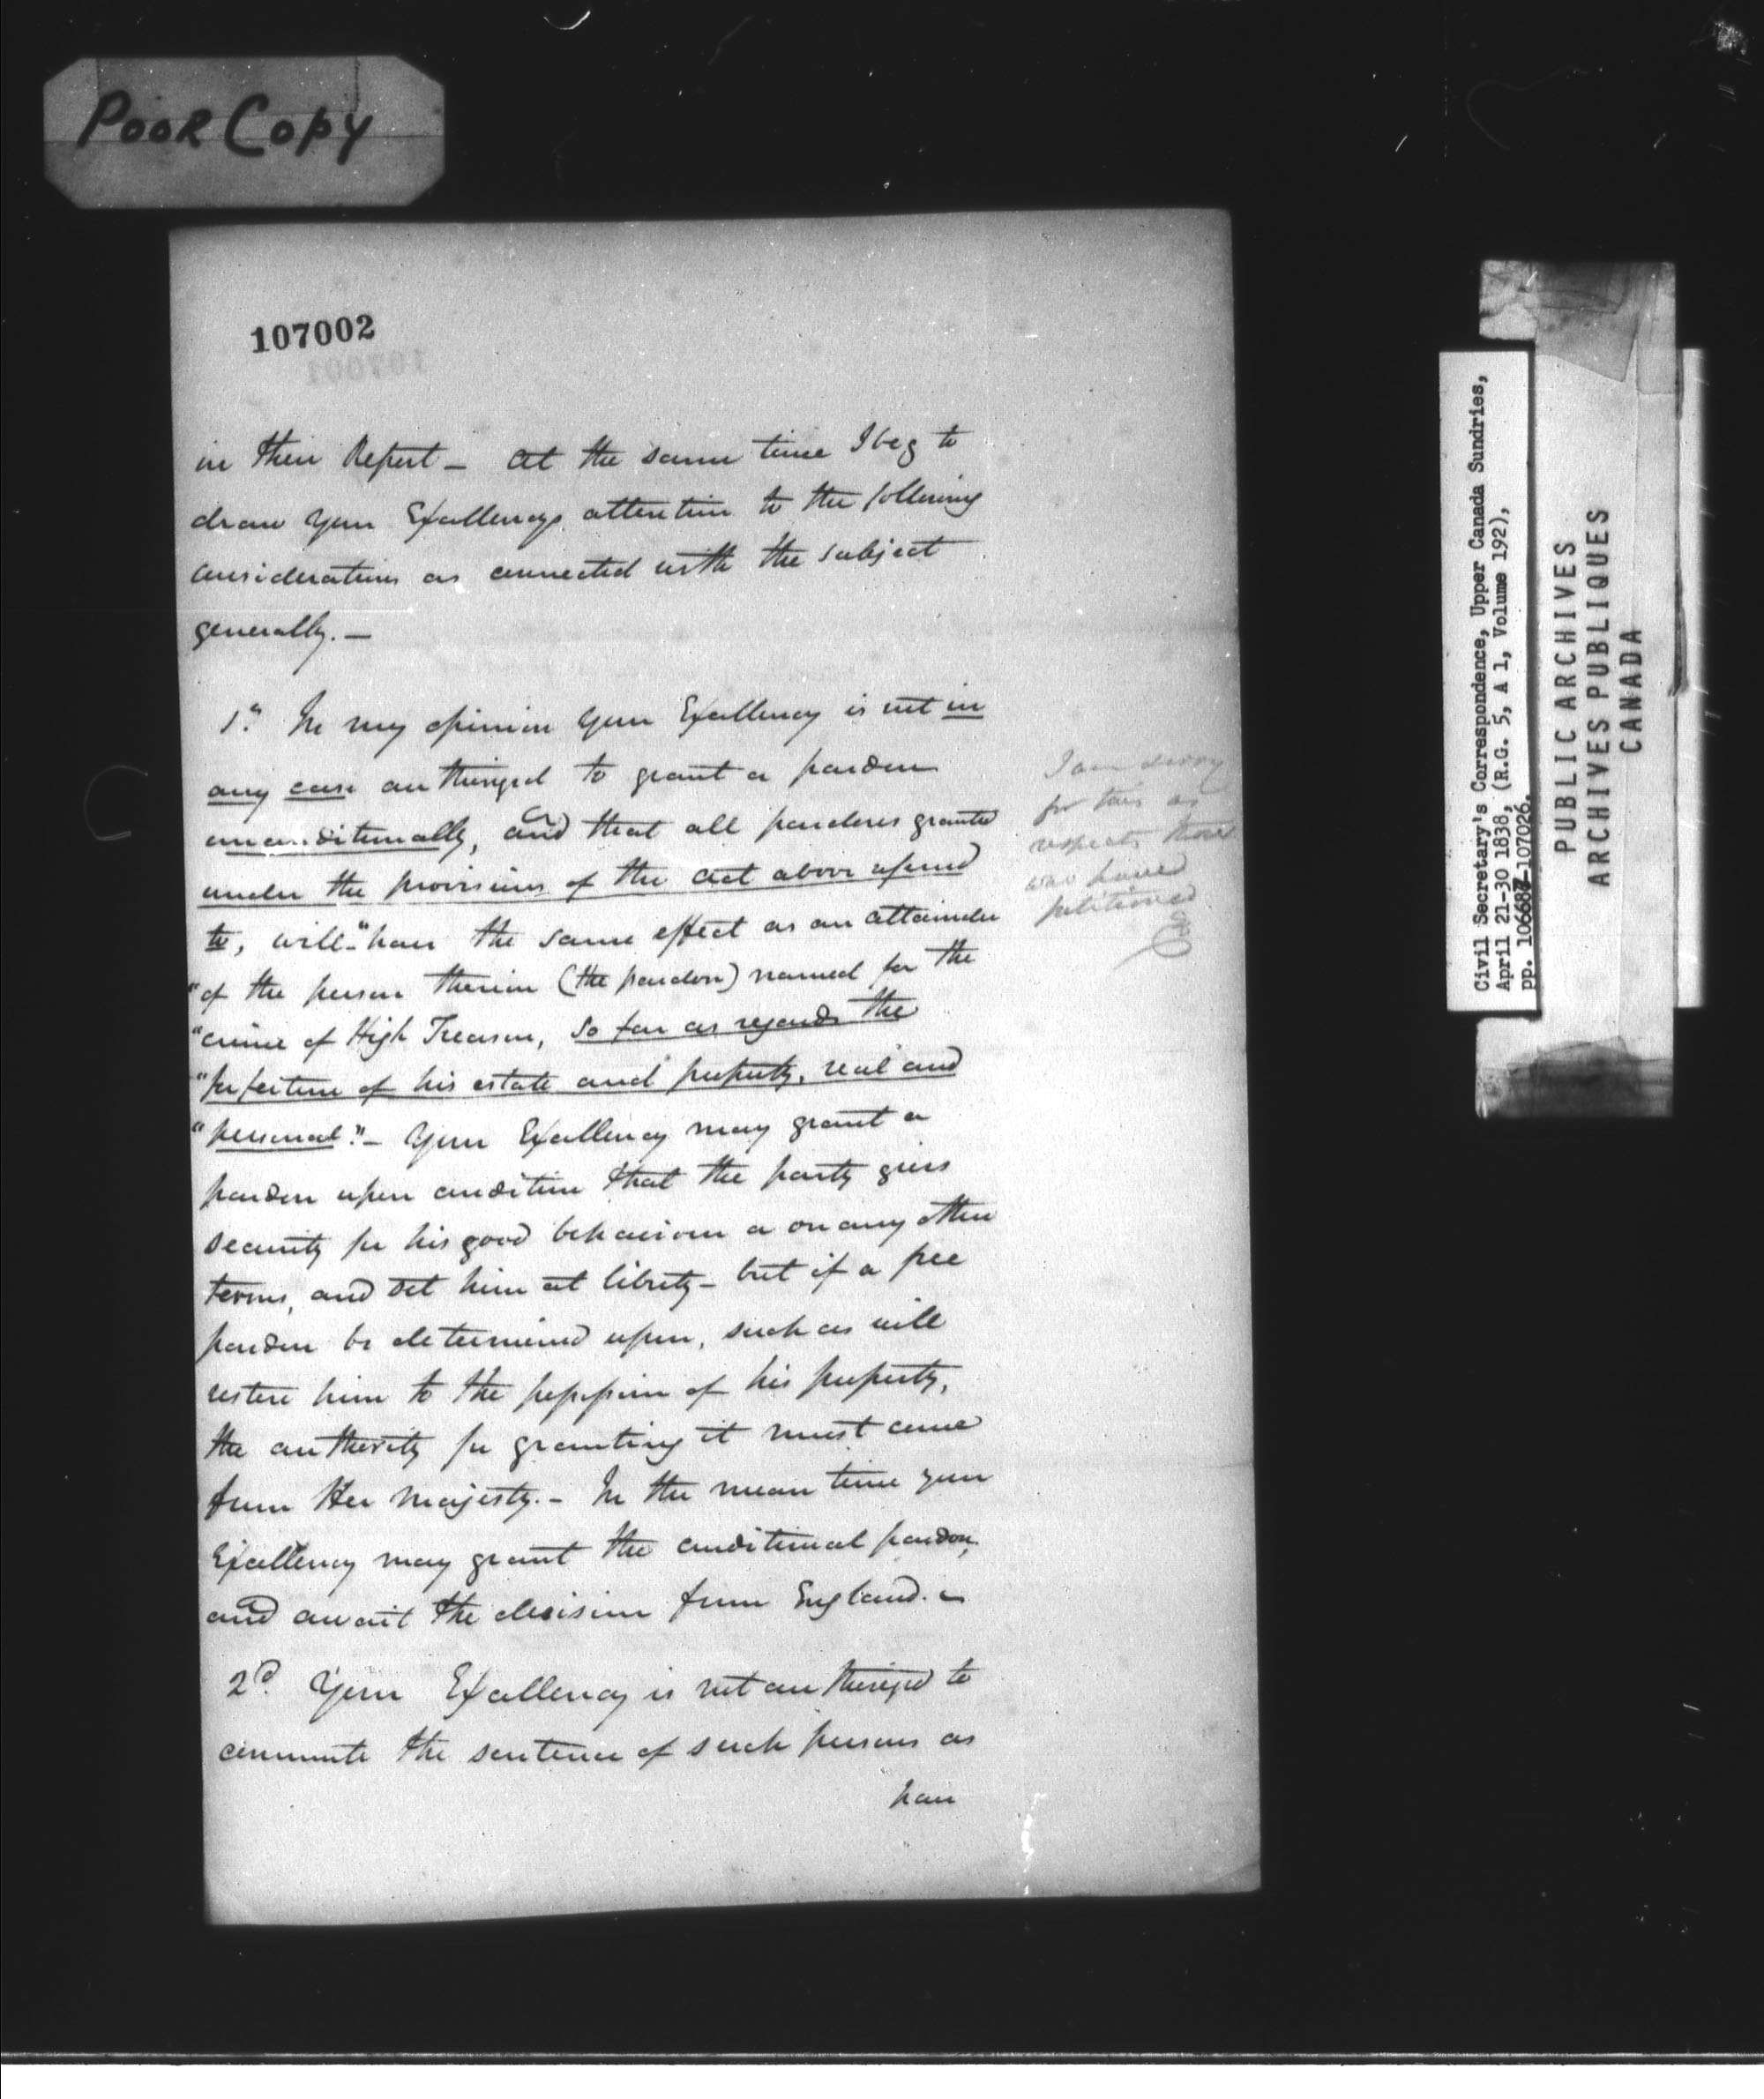 Poor Copy
107002
107001
in their Report — At the same time I beg to
draw your Excellencys attention to the following
considerations as connected with the subject
generally. —
1st. In my opinion Your Excellency is not in
any case authorized to grant a pardon
unconditionally, and that all pardons granted
under the provisions of the Act above referred
to, will "have the same effect as an attainder
"of the person therein (the pardon) named for the
"crime of High Treason, so far as regards the
"forfeiture of his estate and property, real and
"personal". — Your Excellency may grant a
pardon upon condition that the party gives
security for his good behaviour or on any other
terms, and set him at liberty — but if a free
pardon be determined upon, such as will
restore him to the possession of his property,
the authority for granting it must come
from Her Majesty. — In the mean time your
Excellency may grant the conditional pardon,
and await the decision from England. —
2d. Your Excellency is not authorized to
commute the sentence of such persons as
have
I am sorry
for this as
respects those
who have
petitioned
Civil Secretary's Correspondence, Upper Canada Sundries,
April 21-30 1838, (R.G. 5, A 1, Volume 192),
pp. 106687-107026.
PUBLIC ARCHIVES
ARCHIVES PUBLIQUES
CANADA